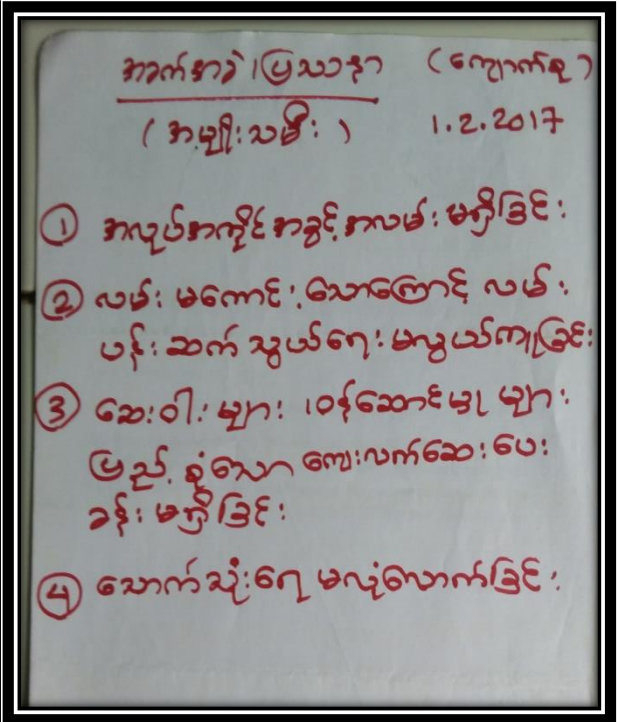 အခက်အခဲ၊ပြဿနာ (ကျောက်စု)
(အမျိုးသမီး) 1.2.2017
① အလုပ်အကိုင်အခွင့်အလမ်း မရှိခြင်း
② လမ်း မကောင်းသောကြောင့် လမ်း
ပန်း ဆက်သွယ်ရေး မလွယ်ကူခြင်း
③ ဆေးဝါးများ၊ ဝန်ဆောင်မှုများ
ပြည့်စုံသော ကျေးလက်ဆေးပေး
ခန်း မရှိခြင်း
④ သောက်သုံးရေ မလုံလောက်ခြင်း